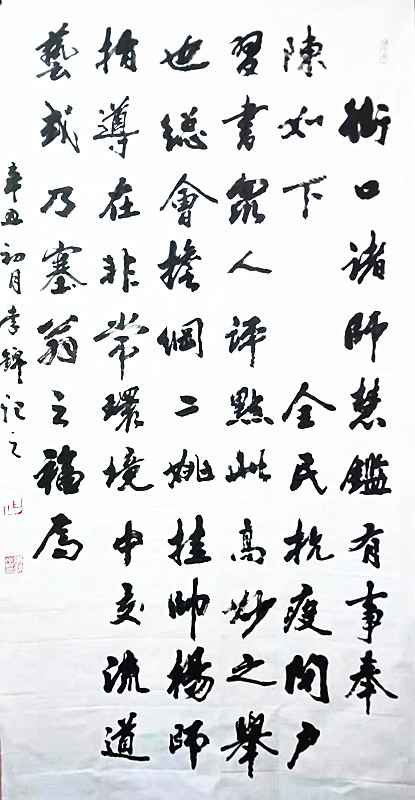 街口諸師慧鑑有事奉
陳如下 全民抗疫閉户
習書眾人評點此高妙之舉
也總會擔綱二姚挂帥楊師
指導在非常環境中交流道
藝或乃塞翁之福焉
辛丑初月李錦記之